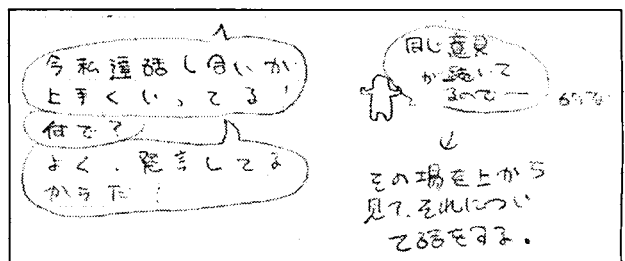 今私達話し合いが
上手くいってる!
何で?
よく、発言してる
からだ!
同じ意見
が続いて
るので―
その場を上から
見て、それについ
て話をする。